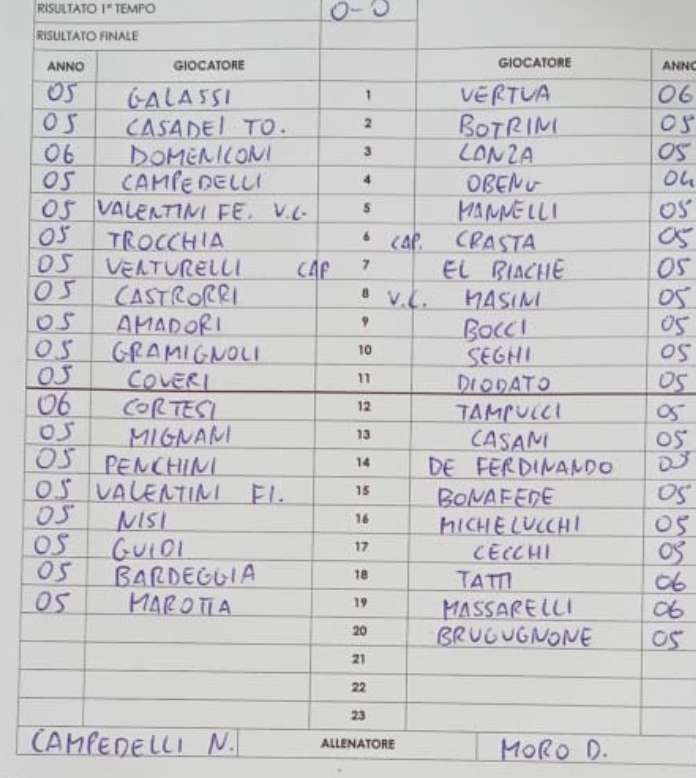 RISULTATO 1° TEMPO 0-0
RISULTATO FINALE
ANNO GIOCATORE GIOCATORE ANNO
05 GALASSI 1 VERTUA 06
05 CASADEI TO. 2 BOTRINI 05
06 DOMENICONI 3 LANZA 05
05 CAMPEDELLI 4 OBENG 04
05 VALENTINI FE. V.C. 5 MANNELLI 05
05 TROCCHIA 6 CAP. CRASTA 05
05 VENTURELLI CAP 7 EL BIACHE 05
05 CASTRORRI 8 V.C. MASINI 05
05 AMADORI 9 BOCCI 05
05 GRAMIGNOLI 10 SEGHI 05
05 COVERI 11 DIODATO 05
06 CORTESI 12 TAMPUCCI 05
05 MIGNANI 13 CASANI 05
05 PENCHINI 14 DE FERDINANDO 05
05 VALENTINI FI. 15 BONAFEDE 05
05 NISI 16 MICHELUCCHI 05
05 GUIDI 17 CECCHI 05
05 BARDEGGIA 18 TATTI 06
05 MAROTTA 19 MASSARELLI 06
20 BRUGUGNONE 05
21
22
23
CAMPEDELLI N. ALLENATORE MORO D.